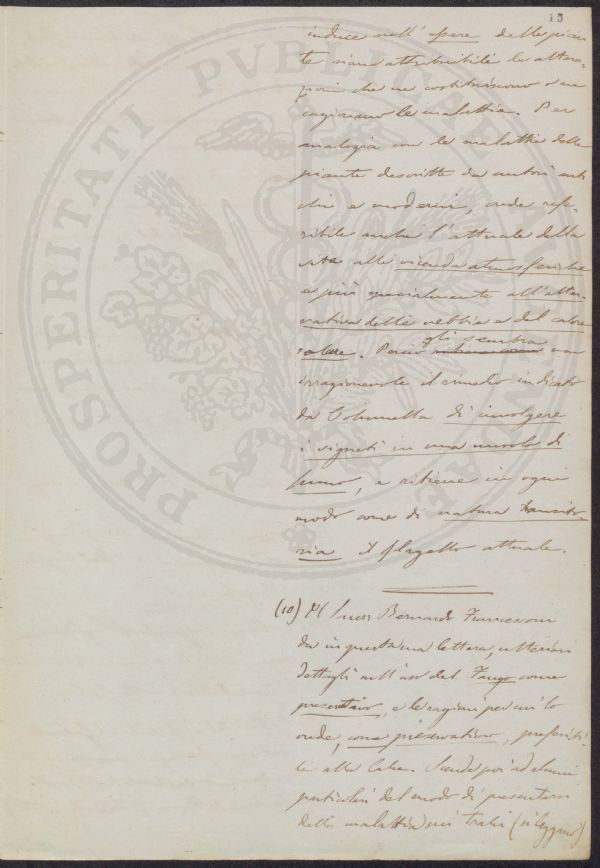 15
induce nell' opere delle pian-
te siano attribuibili le altera-
zioni che ne costituiscono o ne
cagionano le malattie. Per
analogia con le malattie delle
piante descritte da autori anti
chi e moderni, crede refe-
ribile anche l'attuale della
vite alle vicende atmosferiche
e più specialmente all'alter-
nativa della nebbia e del calore
solare. Perciò gli sembra non
irragionevole il rimedio indicato
da Columella di involgere
i vigneti in una nuvola di
fumo, e ritiene in ogni
modo come di natura transito-
ria il flagello attuale.
(10) Il Bernardo Francesconi
da in questa sua lettera, ulteriori
dettagli nell'uso del Fango come
preservativo, e le ragioni per cui lo
crede, come preservativo, preferibi-
le alla Calce. Scende poi ad alcuni
particolari del modo di presentarsi
della malattia nei tralci (si leggono)
PROSPERITATI PUBLICAE AUGENDAE